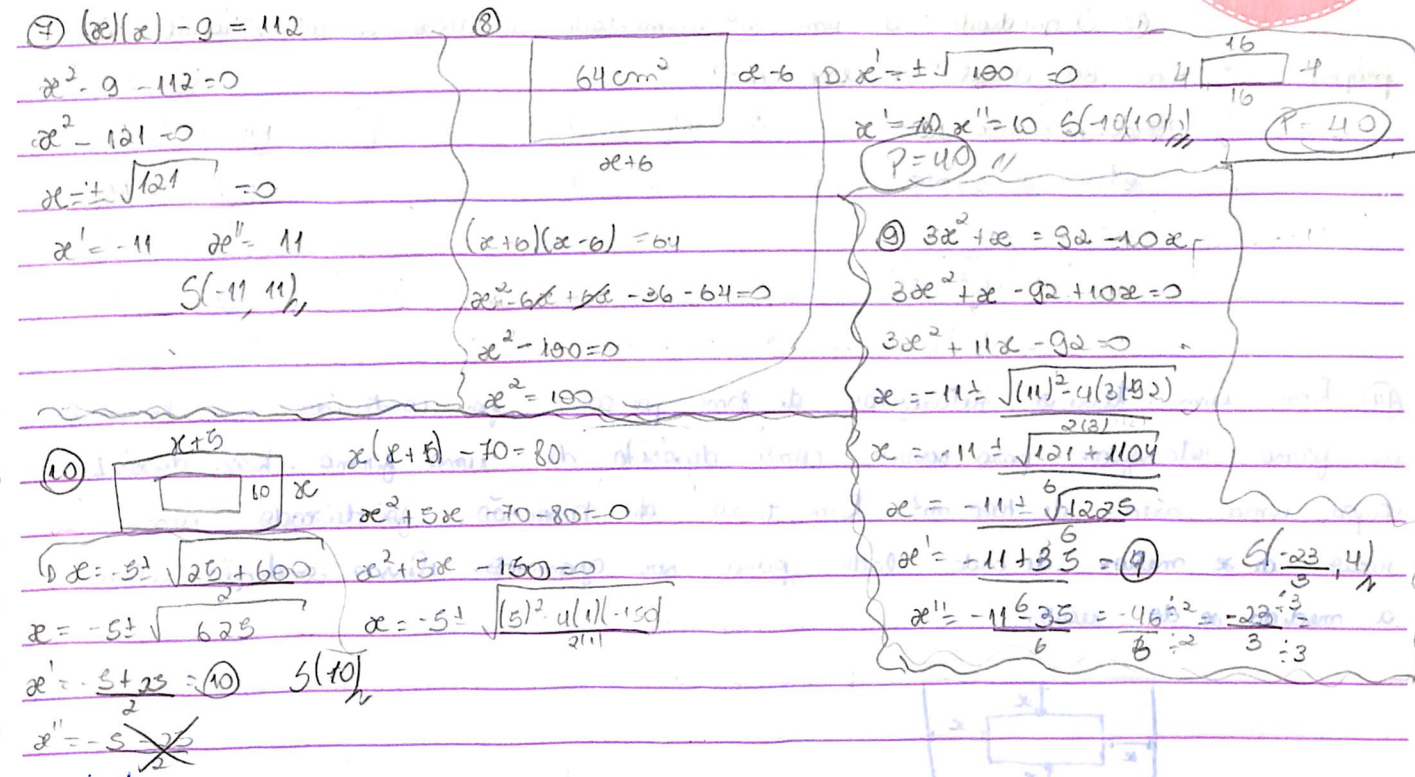 ⑦ (x)(x) - 9 = 112
x² - 9 - 112 = 0
x² - 121 = 0
x = ± √121 = 0
x' = -11 x'' = 11
S(-11, 11)
⑧
64cm² x-6
x+6
(x+6)(x-6) = 64
x² - 6x + 6x - 36 - 64 = 0
x² - 100 = 0
x² = 100
x' = ± √100 = 0
x' = -10 x'' = 10 S(-10(10))
P = 40
16
4 4
16
P = 40
⑨ 3x² + x = 92 - 10x
3x² + x - 92 + 10x = 0
3x² + 11x - 92 = 0
x = -11 ± √(11)² - 4(3)(-92)
2(3)
x = -11 ± √121 + 1104
6
x = -11 ± √1225
6
x' = -11 + 35 = 4
6
S(-23/3, 4)
x'' = -11 - 35 = -46 ÷2 = -23 ÷3 =
6 6 ÷2 3 ÷3
⑩
x+5
10 x
x(x+5) - 70 = 80
x² + 5x - 70 - 80 = 0
x² + 5x - 150 = 0
x = -5 ± √(5)² - 4(1)(-150)
2(1)
x = -5 ± √25 + 600
2
x = -5 ± √625
x' = -5 + 25 = 10 S(10)
2
x'' = -5 - 25
2